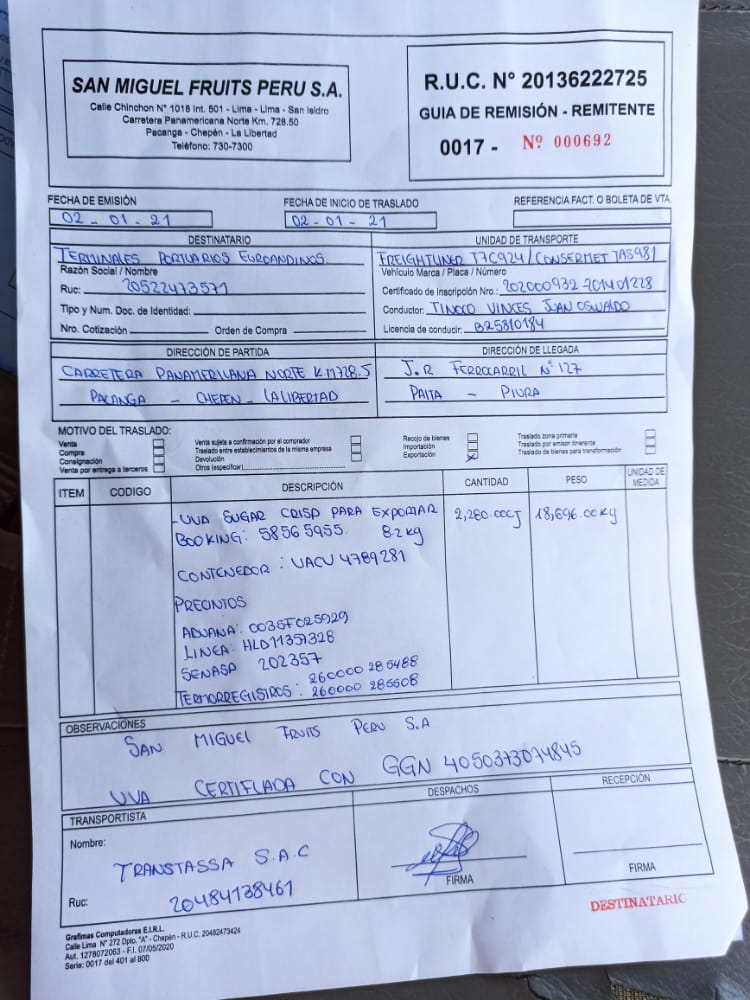 SAN MIGUEL FRUITS PERU S.A.
Calle Chinchon N° 1018 Int. 501 - Lima - Lima - San Isidro
Carretera Panamericana Norte Km. 728.50
Pacanga - Chepén - La Libertad
Teléfono: 730-7300
R.U.C. N° 20136222725
GUIA DE REMISIÓN - REMITENTE
0017 - Nº 000692
FECHA DE EMISIÓN
02 - 01 - 21
FECHA DE INICIO DE TRASLADO
02 - 01 - 21
REFERENCIA FACT. O BOLETA DE VTA.
DESTINATARIO
TERMINALES PORTUARIOS EUROANDINOS
Razón Social / Nombre
Ruc: 20522473571
Tipo y Num. Doc. de Identidad:
Nro. Cotización: Orden de Compra:
UNIDAD DE TRANSPORTE
FREIGHTLINER T7C924 / CONSERMET TAS981
Vehículo Marca / Placa / Número
Certificado de Inscripción Nro.: 202000932 201401228
Conductor: TINOCO VINCES JUAN OSWALDO
Licencia de conducir: B25810184
DIRECCIÓN DE PARTIDA
CARRETERA PANAMERICANA NORTE KM728.5
PACANGA - CHEPEN - LA LIBERTAD
DIRECCIÓN DE LLEGADA
J.R FERROCARRIL N° 127
PAITA - PIURA
MOTIVO DEL TRASLADO:
Venta
Compra
Consignación
Venta por entrega a terceros
Venta sujeta a confirmación por el comprador
Traslado entre establecimientos de la misma empresa
Devolución
Otros (especificar)
Recojo de bienes
Importación
Exportación X
Traslado zona primaria
Traslado por emisor itinerante
Traslado de bienes para transformación
ITEM CODIGO DESCRIPCIÓN CANTIDAD PESO UNIDAD DE MEDIDA
- UVA SUGAR CRISP PARA EXPORTAR 2,280.00CJ 18,696.00Kg
BOOKING: 58565955. 8.2 Kg
CONTENEDOR : UACU 4789281
PRECINTOS
ADUANA: 003SF025929
LINEA: HLD11357328
SENASA 202357
TERMORREGISTROS: 260000 285488
260000 286608
OBSERVACIONES
SAN MIGUEL FRUITS PERU S.A
UVA CERTIFLADA CON GGN 4050373074845
TRANSPORTISTA
Nombre:
TRANSTASSA S.A.C
Ruc: 20484138461
DESPACHOS
FIRMA
RECEPCIÓN
FIRMA
DESTINATARIO
Grafimas Computadoras E.I.R.L.
Calle Lima N° 272 Dpto. "A" - Chepén - R.U.C. 20482473424
Aut. 1278072063 - F.I. 07/05/2020
Serie: 0017 del 401 al 800